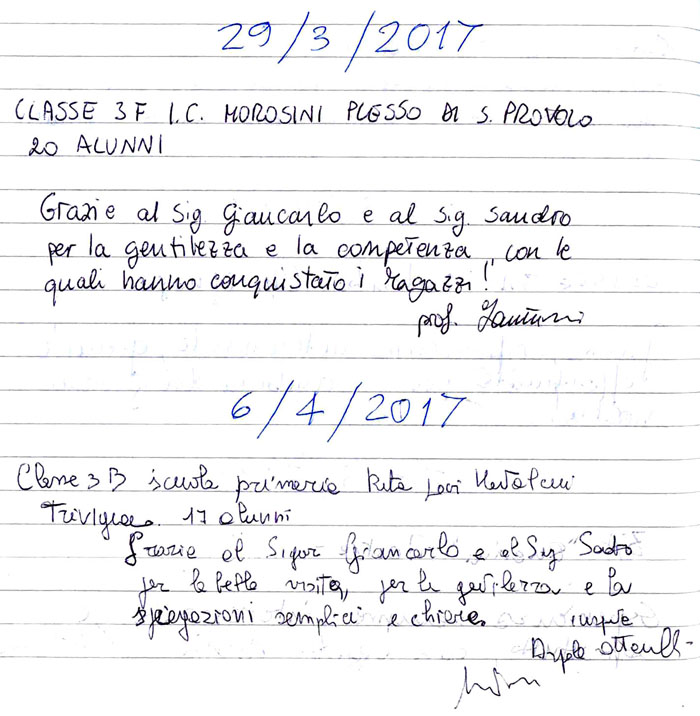 29/3/2017
CLASSE 3F I.C. MOROSINI PLESSO DI S. PROVOLO
20 ALUNNI
Grazie al Sig Giancarlo e al Sig. Sandro
per la gentilezza e la competenza, con le
quali hanno conquistato i ragazzi!
prof.
6/4/2017
Classe 3B scuola primaria Rita Levi Montalcini
17 alunni
Grazie al Signor Giancarlo e al Sig Sandro
per la bella visita, per la gentilezza e la
spiegazioni semplici e chiare.